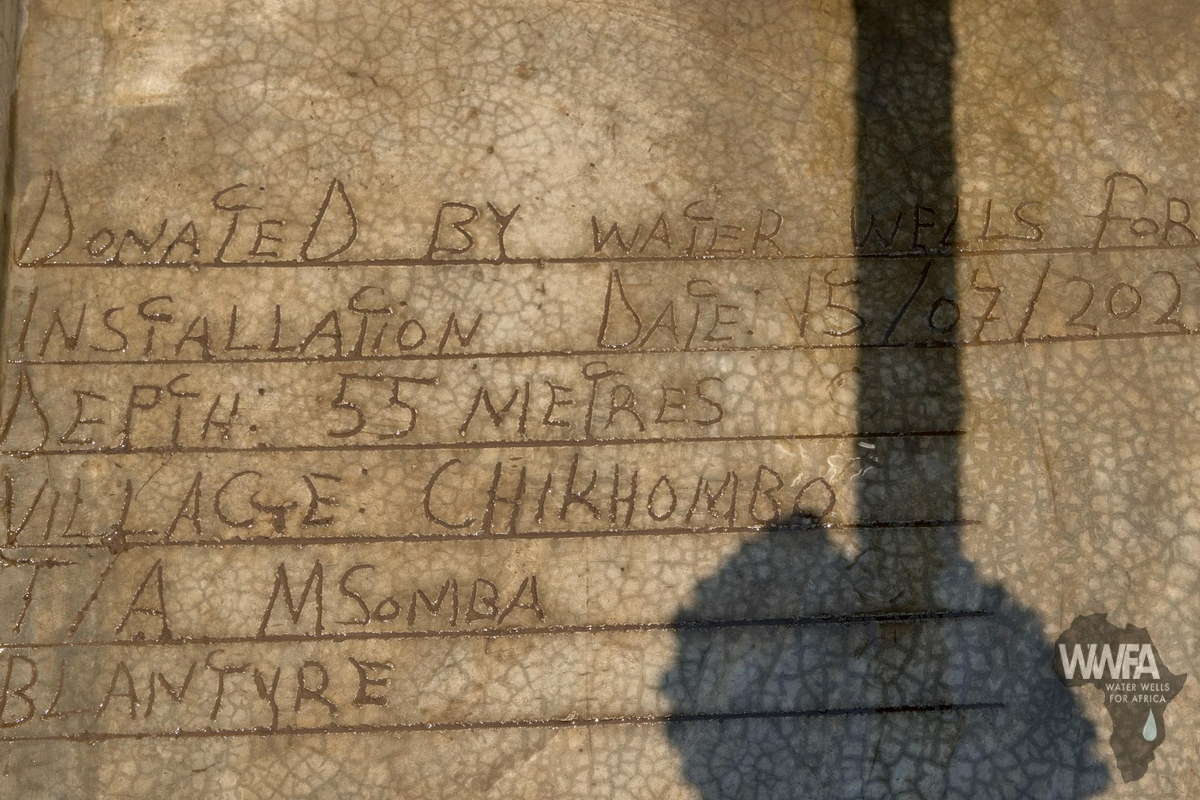 DONATED BY WATER WELLS FOR
INSTALLATION DATE: 15/07/202
DEPTH: 55 METRES
VILLAGE: CHIKHOMBO
T/A MSOMBA
BLANTYRE
WWFA
WATER WELLS
FOR AFRICA